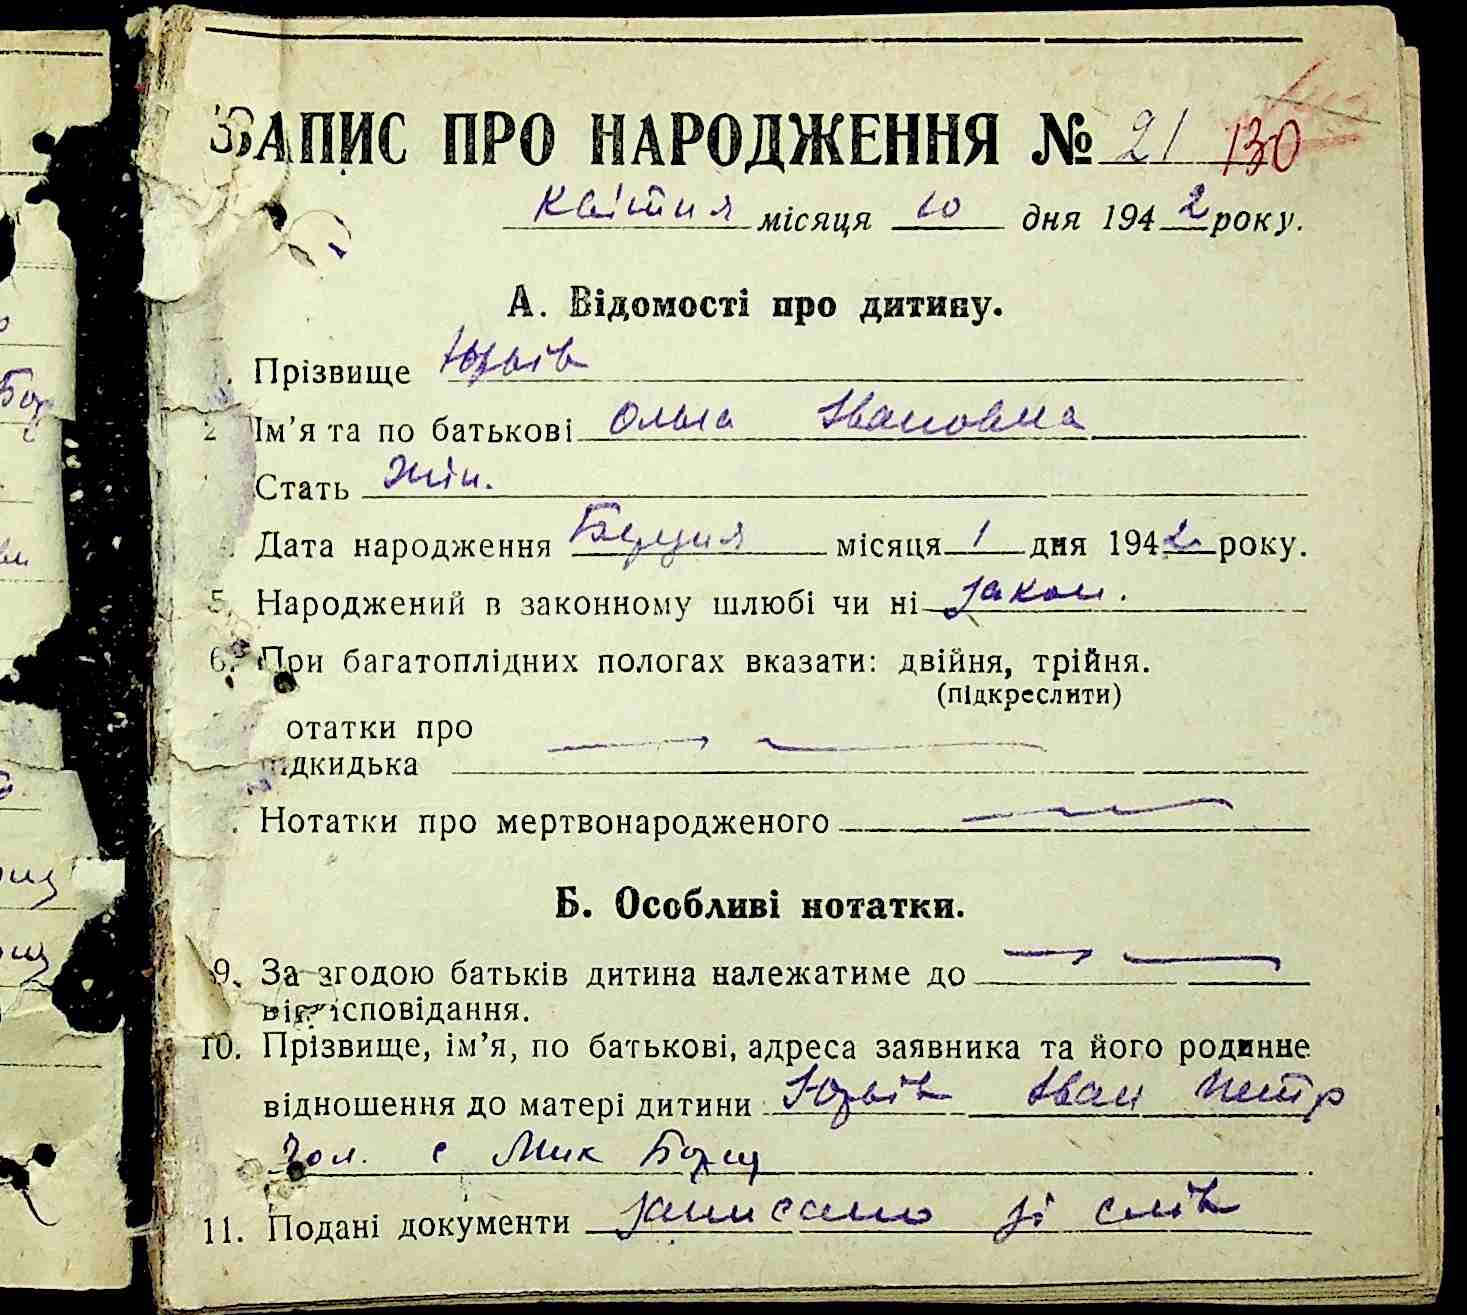 ЗАПИС ПРО НАРОДЖЕННЯ № 21 130
Квітня місяця 10 дня 1942 року.
А. Відомості про дитину.
1. Прізвище Юрьів
2 Ім'я та по батькові Ольга Івановна
Стать Жін.
4. Дата народження місяця 1 дня 1942 року.
5. Народжений в законному шлюбі чи ні закон.
6. При багатоплідних пологах вказати: двійня, трійня.
(підкреслити)
отатки про
підкидька
. Нотатки про мертвонародженого
Б. Особливі нотатки.
9. За згодою батьків дитина належатиме до
віросповідання.
10. Прізвище, ім'я, по батькові, адреса заявника та його родинне
відношення до матері дитини Юрьів Іван Петр
чол. с Мик Борщ
11. Подані документи записано зі слів